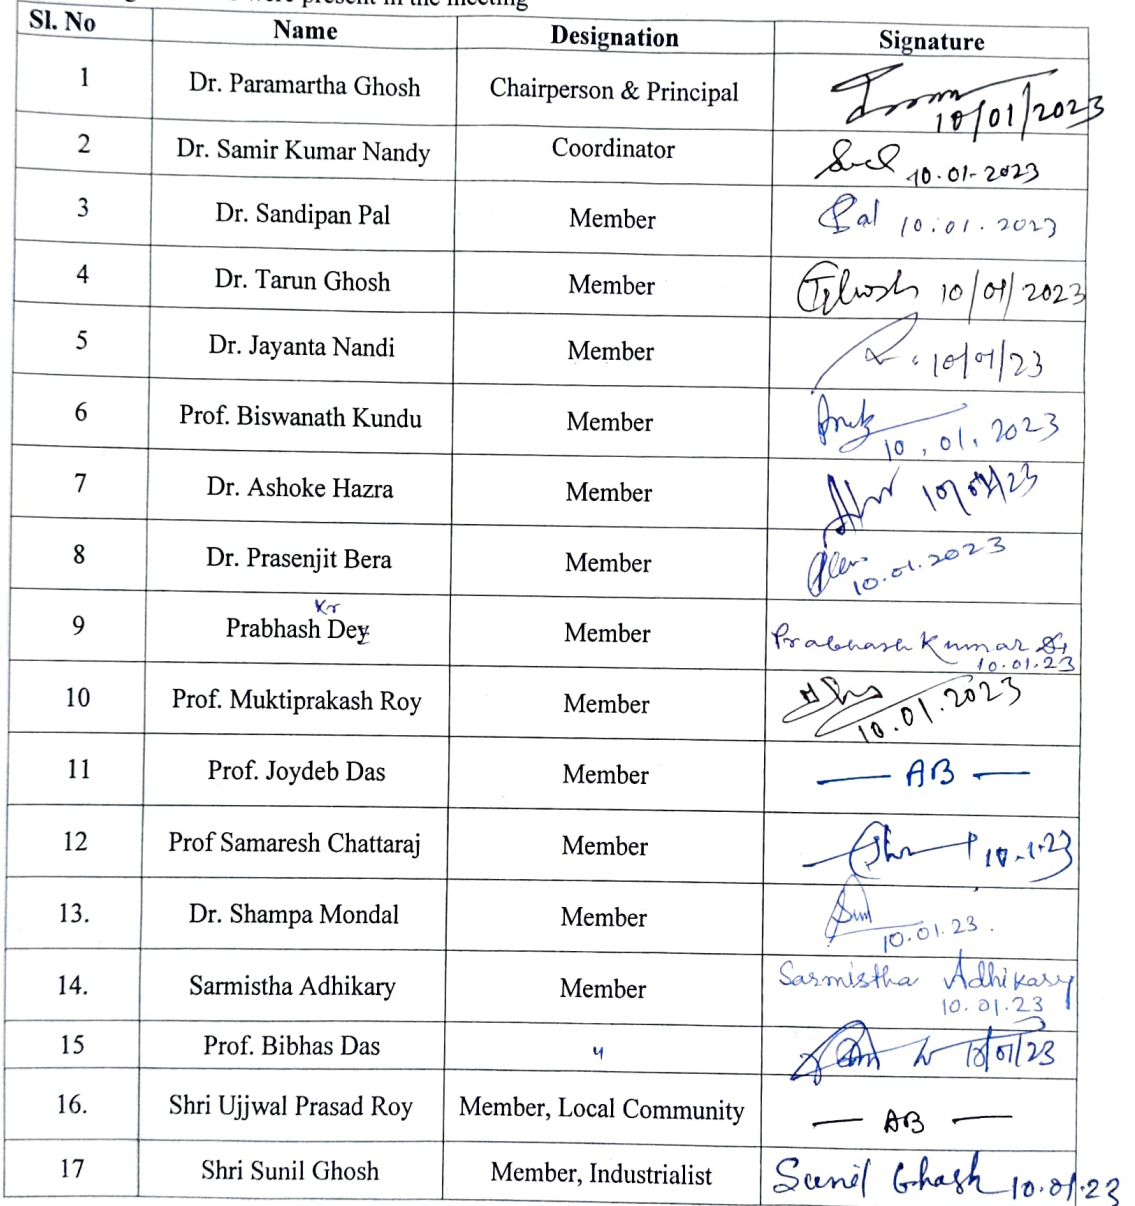 were present in the meeting
Sl. No Name Designation Signature
1 Dr. Paramartha Ghosh Chairperson & Principal 10/01/2023
2 Dr. Samir Kumar Nandy Coordinator 10.01-2023
3 Dr. Sandipan Pal Member Pal 10.01.2023
4 Dr. Tarun Ghosh Member TGhosh 10/01/2023
5 Dr. Jayanta Nandi Member 10/01/23
6 Prof. Biswanath Kundu Member 10.01.2023
7 Dr. Ashoke Hazra Member 10/01/23
8 Dr. Prasenjit Bera Member 10.01.2023
Kr
9 Prabhash Dey Member Prabhash Kumar
10.01.23
10 Prof. Muktiprakash Roy Member 10.01.2023
11 Prof. Joydeb Das Member — AB —
12 Prof Samaresh Chattaraj Member 10.1.23
13. Dr. Shampa Mondal Member 10.01.23.
14. Sarmistha Adhikary Member Sarmistha Adhikary
10.01.23
15 Prof. Bibhas Das 10/01/23
16. Shri Ujjwal Prasad Roy Member, Local Community — AB —
17 Shri Sunil Ghosh Member, Industrialist Sunil Ghosh 10.01.23